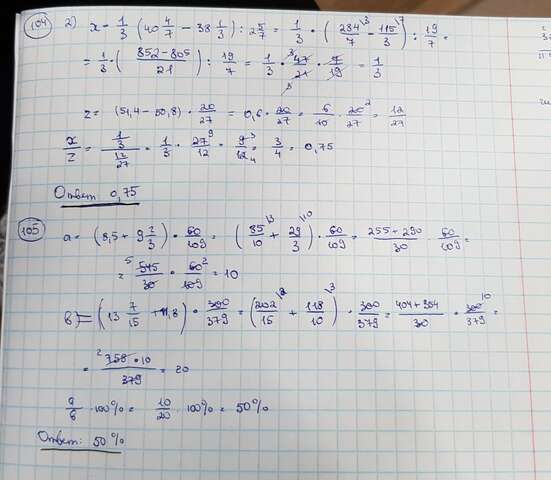 104 2) x - 1/3 (40 4/7 - 38 1/3) : 2 5/7 = 1/3 · (284/7 \3 - 115/3 \7) : 19/7 =
= 1/3 · (852 - 805/21) : 19/7 = 1/3 · 47/21 · 7/19 = 1/3
z = (51,4 - 50,8) · 20/27 = 0,6 · 20/27 = 6/10 · 20/27 = 12/27
x/z = 1/3 / 12/27 = 1/3 · 27/12 = 9/12 = 3/4 = 0,75
Ответ 0,75
105 a = (8,5 + 9 2/3) · 60/109 = (85/10 \3 + 29/3 \10) · 60/109 = 255 + 290/30 · 60/109 =
= 545/30 · 60/109 = 10
b = (13 7/15 + 11,8) · 300/379 = (202/15 \2 + 118/10 \3) · 300/379 = 404 + 354/30 · 300/379 =
= 758 · 10/379 = 20
a/b · 100% = 10/20 · 100% = 50%
Ответ: 50%